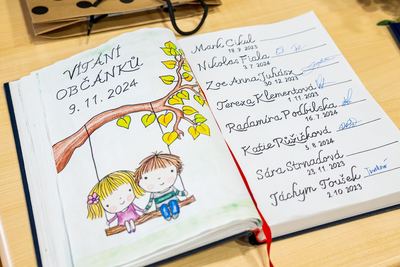 VÍTÁNÍ
OBČÁNKŮ
9. 11. 2024
Mark Cikul
19. 9. 2023
Nikolas Fiala
2. 7. 2024
Zoe Anna Juhász
30. 12. 2023
Tereza Klementová
1. 11. 2023
Radamíra Podbilská
16. 7. 2024
Katie Růžičková
3. 8. 2024
Sára Strnadová
23. 11. 2023
Jáchym Toušek
2. 10. 2023